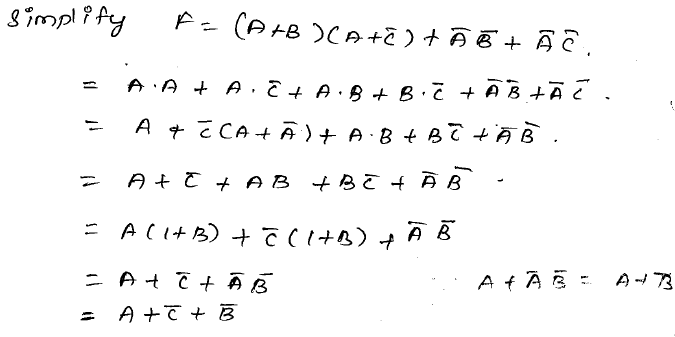 Simplify F = (A+B)(A+C̄) + Ā B̄ + Ā C̄.
= A·A + A·C̄ + A·B + B·C̄ + Ā B̄ + Ā C̄.
= A + C̄(A+Ā) + A·B + BC̄ + Ā B̄.
= A + C̄ + AB + BC̄ + Ā B̄.
= A(1+B) + C̄(1+B) + Ā B̄
= A + C̄ + Ā B̄ ∵ A + Ā B̄ = A + B̄
= A + C̄ + B̄